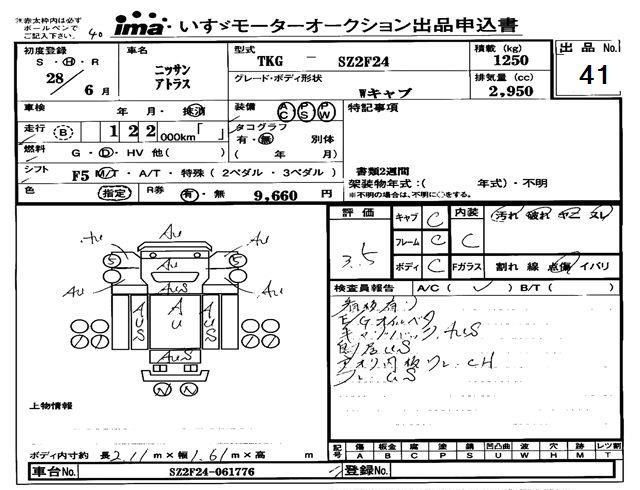 ※赤太枠内は必ず
ボールペンで
ご記入下さい。
40
ima いすゞモーターオークション出品申込書
初度登録
S・H・R
28
6 月
車名
ニッサン
アトラス
型式
TKG － SZ2F24
グレード・ボディ形状
Wキャブ
積載 (kg)
1250
排気量 (cc)
2,950
出品 No.
41
車検 年 月・抹消
装備 AC PS PW
特記事項
走行 (B) 1 2 2 000km「 」
タコグラフ
有・無 別体
( 年 月)
燃料 G・D・HV 他( )
シフト F5 M/T・A/T・特殊 (2ペダル・3ペダル)
書類2週間
架装物年式:( 年式)・不明
※不明の場合は、不明に○をする。
色 指定 R券 有・無 9,660 円
評価
3.5
キャブ C
フレーム C
ボディ C
内装 C
汚れ 破れ ヤニ スレ
Fガラス 割れ 線 点傷 イバリ
検査員報告 A/C( ) B/T( )
看板有り
EGオイルベタ
AUS
US
アオリ内板ワレ. CH
US
AU AU AU AU
5 5
AUS
AUS
AU
AUS
AUS
上物情報
ボディ内寸約 長 2.11 m×幅 1.61 m×高 m
記号 傷 板金 腐 塗 錆 凹凸曲 波 穴 跡 レツ割
A B C P S U W H M T
車台No. SZ2F24-061776 登録No.